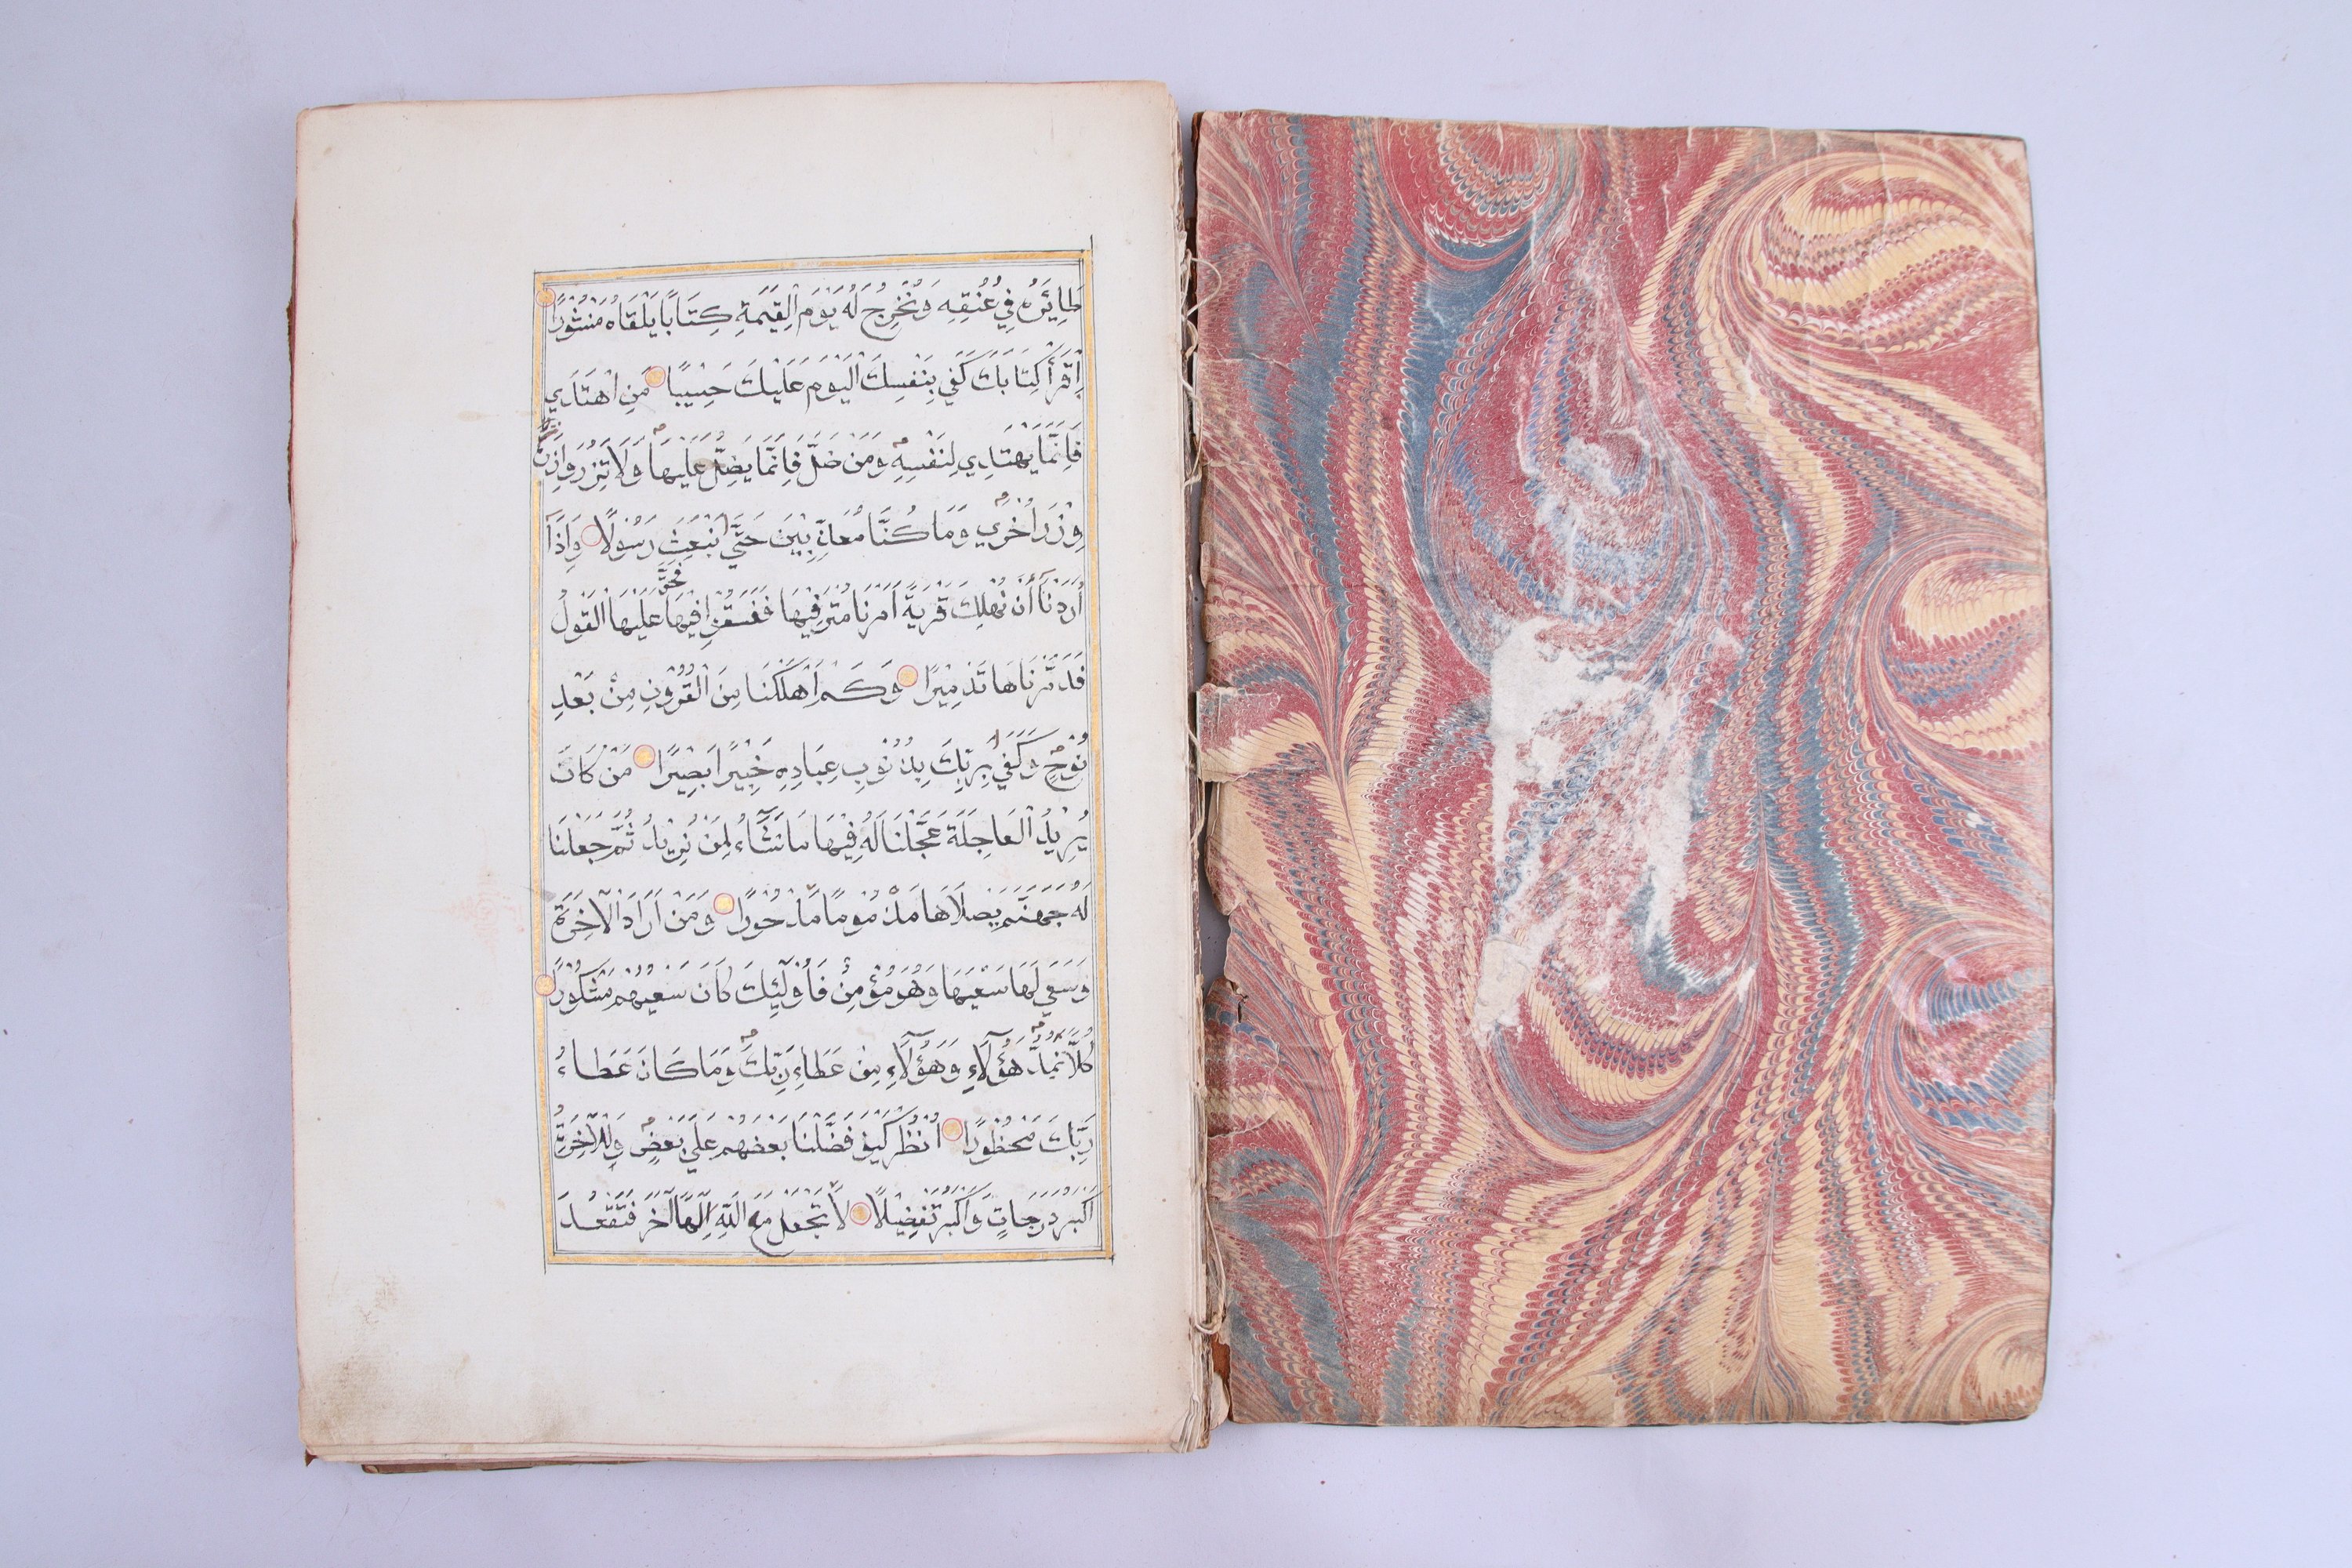 طَائِرَهُ فِي عُنُقِهِ وَنُخْرِجُ لَهُ يَوْمَ الْقِيٰمَةِ كِتَابًا يَلْقَاهُ مَنْشُورًا
اِقْرَأْ كِتَابَكَ كَفَي بِنَفْسِكَ الْيَوْمَ عَلَيْكَ حَسِيبًا مَنِ اهْتَدَي
فَاِنَّمَا يَهْتَدِي لِنَفْسِهِ وَمَنْ ضَلَّ فَاِنَّمَا يَضِلُّ عَلَيْهَا وَلَا تَزِرُ وَازِرَةٌ
وِزْرَ اُخْرَي وَمَا كُنَّا مُعَذِّبِيْنَ حَتَّي نَبْعَثَ رَسُوْلًا وَاِذَا
اَرَدْنَا اَنْ نُهْلِكَ قَرْيَةً اَمَرْنَا مُتْرَفِيْهَا فَفَسَقُوْا فِيْهَا فَحَقَّ عَلَيْهَا الْقَوْلُ
فَدَمَّرْنَاهَا تَدْمِيْرًا وَكَمْ اَهْلَكْنَا مِنَ الْقُرُوْنِ مِنْ بَعْدِ
نُوْحٍ وَكَفَي بِرَبِّكَ بِذُنُوْبِ عِبَادِهِ خَبِيْرًا بَصِيْرًا مَنْ كَانَ
يُرِيْدُ الْعَاجِلَةَ عَجَّلْنَا لَهُ فِيْهَا مَا نَشَاءُ لِمَنْ نُرِيْدُ ثُمَّ جَعَلْنَا
لَهُ جَهَنَّمَ يَصْلَاهَا مَذْمُوْمًا مَدْحُوْرًا وَمَنْ اَرَادَ الْاٰخِرَةَ
وَسَعَي لَهَا سَعْيَهَا وَهُوَ مُؤْمِنٌ فَاُولٰٓئِكَ كَانَ سَعْيُهُمْ مَشْكُوْرًا
كُلًّا نُمِدُّ هٰٓؤُلَاۤءِ وَهٰٓؤُلَاۤءِ مِنْ عَطَاءِ رَبِّكَ وَمَا كَانَ عَطَاءُ
رَبِّكَ مَحْظُوْرًا اُنْظُرْ كَيْفَ فَضَّلْنَا بَعْضَهُمْ عَلَي بَعْضٍ وَلَلْاٰخِرَةُ
اَكْبَرُ دَرَجَاتٍ وَاَكْبَرُ تَفْضِيْلًا لَا تَجْعَلْ مَعَ اللّٰهِ اِلٰهًا اٰخَرَ فَتَقْعُدَ